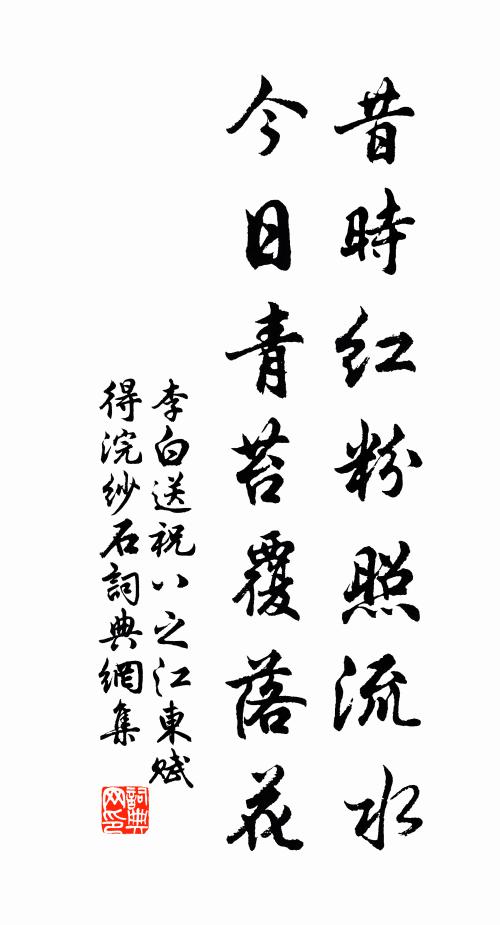 昔時紅粉照流水
今日青苔覆落花
李白送祝八之江東賦
得浣紗石詞典網集
詞典
网印